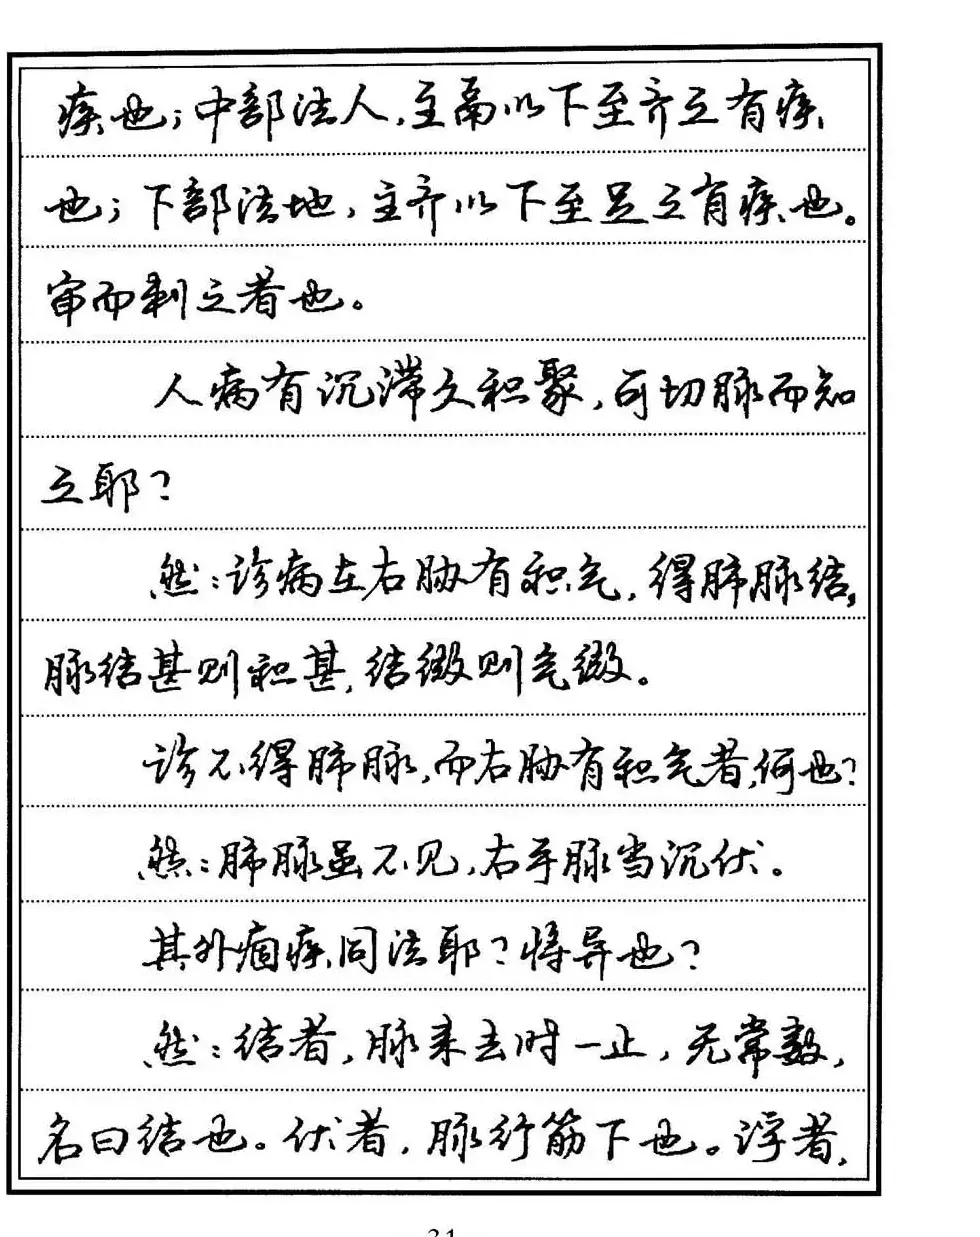 疾也；中部法人，主鬲以下至齐之有疾
也；下部法地，主齐以下至足之有疾也。
审而刺之者也。
人病有沉滞久积聚，可切脉而知
之耶？
然：诊病左右胁有积气，得肺脉结，
脉结甚则积甚，结微则气微。
诊不得肺脉，而右胁有积气者，何也？
然：肺脉虽不见，右手脉当沉伏。
其外痼疾同法耶？将异也？
然：结者，脉来去时一止，无常数，
名曰结也。伏者，脉行筋下也。浮者，
31